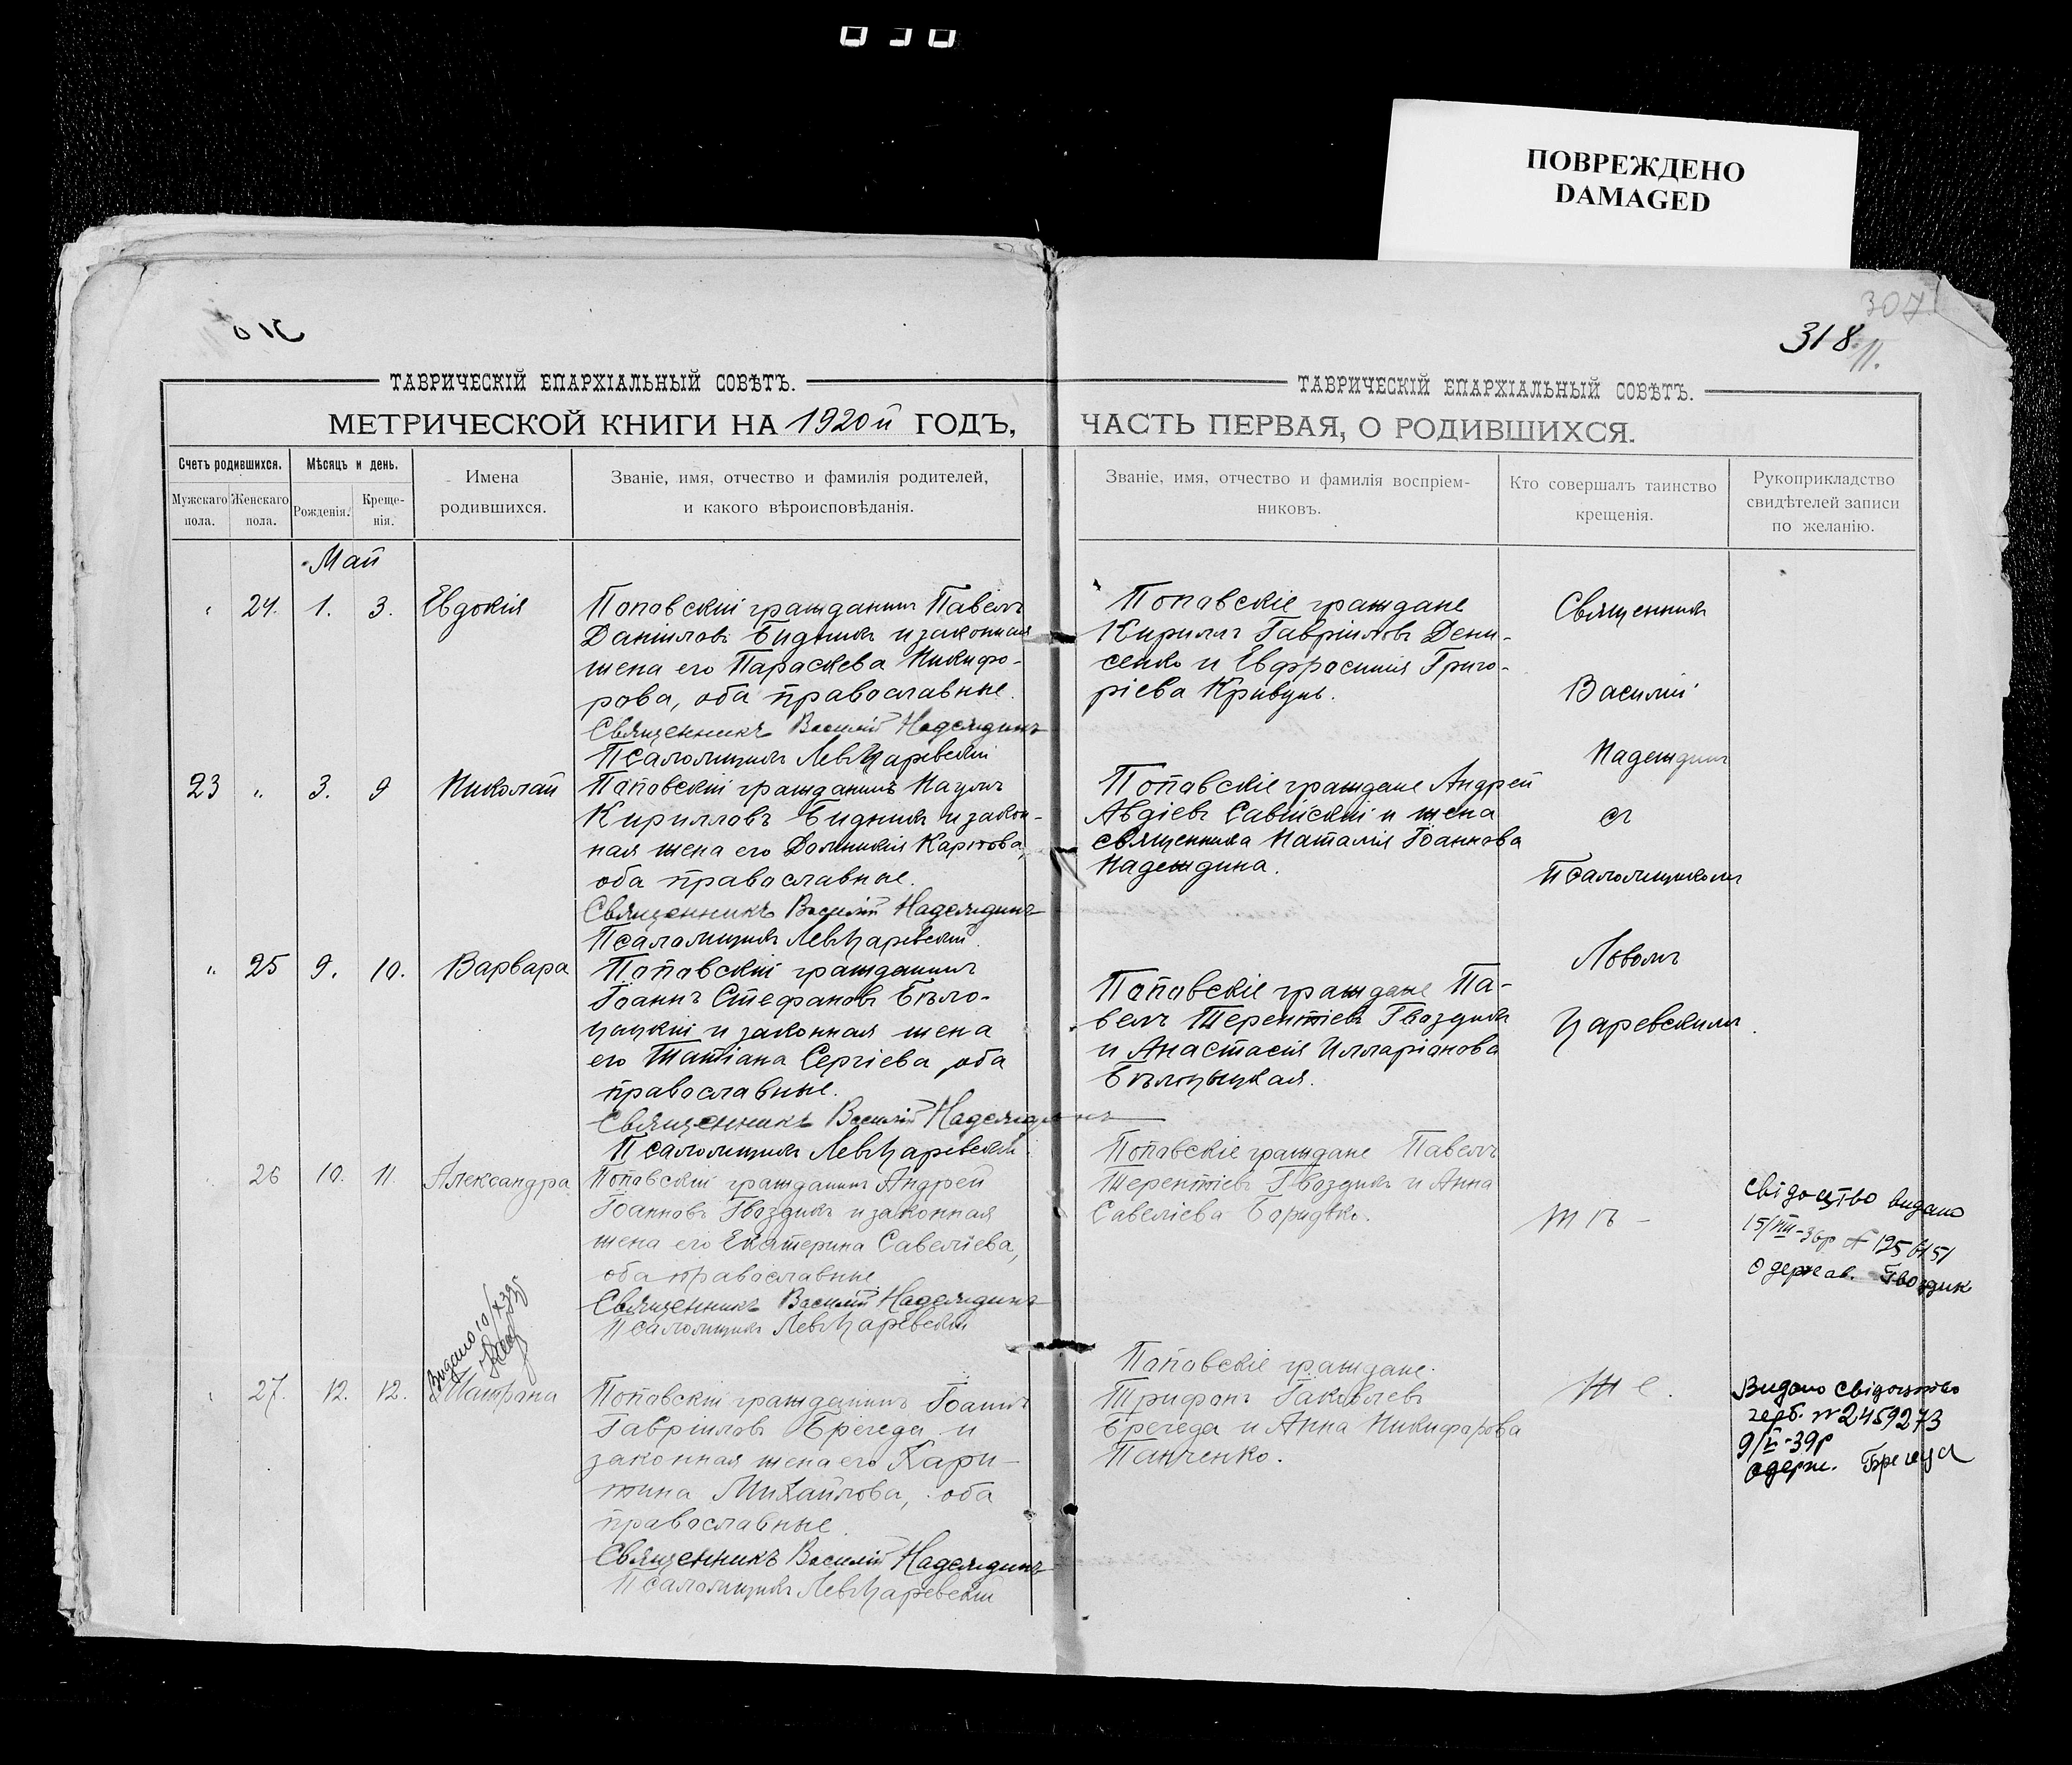 ПОВРЕЖДЕНО
DAMAGED
307
318
11.
ТАВРИЧЕСКІЙ ЕПАРХІАЛЬНЫЙ СОВѢТЪ.
МЕТРИЧЕСКОЙ КНИГИ НА 1920й ГОДЪ,
Счетъ родившихся.
Мужскаго пола.
Женскаго пола.
Мѣсяцъ и день.
Рожденія.
Креще-
нія.
Имена
родившихся.
Званіе, имя, отчество и фамилія родителей,
и какого вѣроисповѣданія.
Май
24. 1. 3. Евдокія
Поповскій гражданинъ Павелъ
Даніиловъ Бидникъ и законная
жена его Параскева Никифо-
рова, оба православные.
Священникъ Василій Надеждинъ
Псаломщикъ Левъ Царевскій
23 " 3. 9 Николай
Поповскій гражданинъ Наумъ
Кирилловъ Бидникъ и закон-
ная жена его Домникія Карпова,
оба православные.
Священникъ Василій Надеждинъ
Псаломщикъ Левъ Царевскій
" 25 9. 10. Варвара
Поповскій гражданинъ
Іоаннъ Стефановъ Бѣло-
цуцкій и законная жена
его Татіана Сергіева, оба
православные.
Священникъ Василій Надеждинъ
Псаломщикъ Левъ Царевскій
26 10. 11. Александра
Поповскій гражданинъ Андрей
Іоанновъ Гвоздикъ и законная
жена его Екатерина Савеліева,
оба православные
Священникъ Василій Надеждинъ
Псаломщикъ Левъ Царевскій
Видано
27. 12. 12. Матрона
Поповскій гражданинъ Іоаннъ
Гавріиловъ Брегеда и
законная жена его Хари-
тина Михайлова, оба
православные.
Священникъ Василій Надеждинъ
Псаломщикъ Левъ Царевскій
ТАВРИЧЕСКІЙ ЕПАРХІАЛЬНЫЙ СОВѢТЪ.
ЧАСТЬ ПЕРВАЯ, О РОДИВШИХСЯ.
Званіе, имя, отчество и фамилія воспріем-
никовъ.
Кто совершалъ таинство
крещенія.
Рукоприкладство
свидѣтелей записи
по желанію.
Поповскіе граждане
Кириллъ Гавріиловъ Дени-
сенко и Евфросинія Григо-
ріева Кривунь.
Поповскіе граждане Андрей
Авдіевъ Савійскій и жена
священника Наталія Іоаннова
Надеждина.
Поповскіе граждане Па-
велъ Терентіевъ Гвоздикъ
и Анастасія Илларіонова
Бѣлоцуцкая.
Поповскіе граждане Павелъ
Терентіевъ Гвоздикъ и Анна
Савеліева
Поповскіе граждане
Трифонъ Іаковлевъ
Брегеда и Анна Никифорова
Панченко.
Священникъ
Василій
Надеждинъ
съ
Псаломщикомъ
Львомъ
Царевскимъ.
Тѣ -
Же.
Свідоцтво видано
Одержав. Гвоздик
Видано свідоцтво
герб. № 2459273
одерж. Брегеда